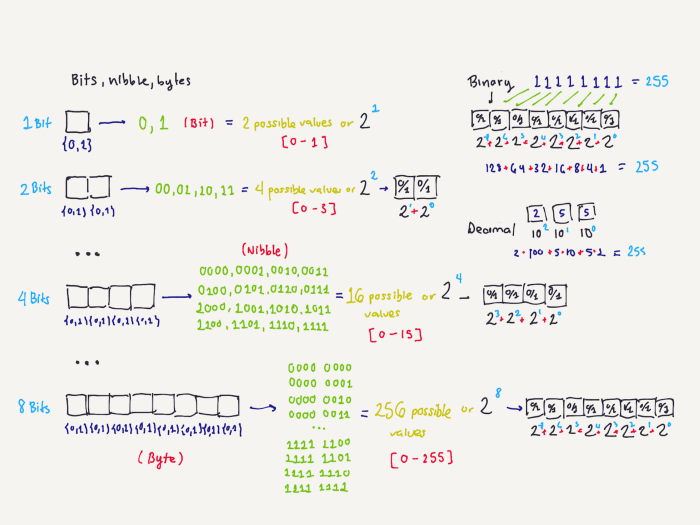 Bits, nibble, bytes
1 Bit
{0,1}
0, 1 (Bit) = 2 possible values or 2^1
[0-1]
2 Bits
{0,1} {0,1}
00, 01, 10, 11 = 4 possible values or 2^2
[0-3]
0/1 0/1
2^1 + 2^0
...
(Nibble)
4 Bits
{0,1}{0,1}{0,1}{0,1}
0000, 0001, 0010, 0011
0100, 0101, 0110, 0111
1000, 1001, 1010, 1011
1100, 1101, 1110, 1111
= 16 possible values or 2^4
[0-15]
0/1 0/1 0/1 0/1
2^3 + 2^2 + 2^1 + 2^0
...
8 Bits
{0,1}{0,1}{0,1}{0,1}{0,1}{0,1}{0,1}{0,1}
(Byte)
0000 0000
0000 0001
0000 0010
0000 0011
...
1111 1100
1111 1101
1111 1110
1111 1111
= 256 possible values or 2^8
[0-255]
0/1 0/1 0/1 0/1 0/1 0/1 0/1 0/1
Binary 11111111 = 255
0/1 0/1 0/1 0/1 0/1 0/1 0/1 0/1
128+64+32+16+8+4+1 = 255
Decimal
2 5 5
10^2 10^1 10^0
2·100+5·10+5·1 = 255